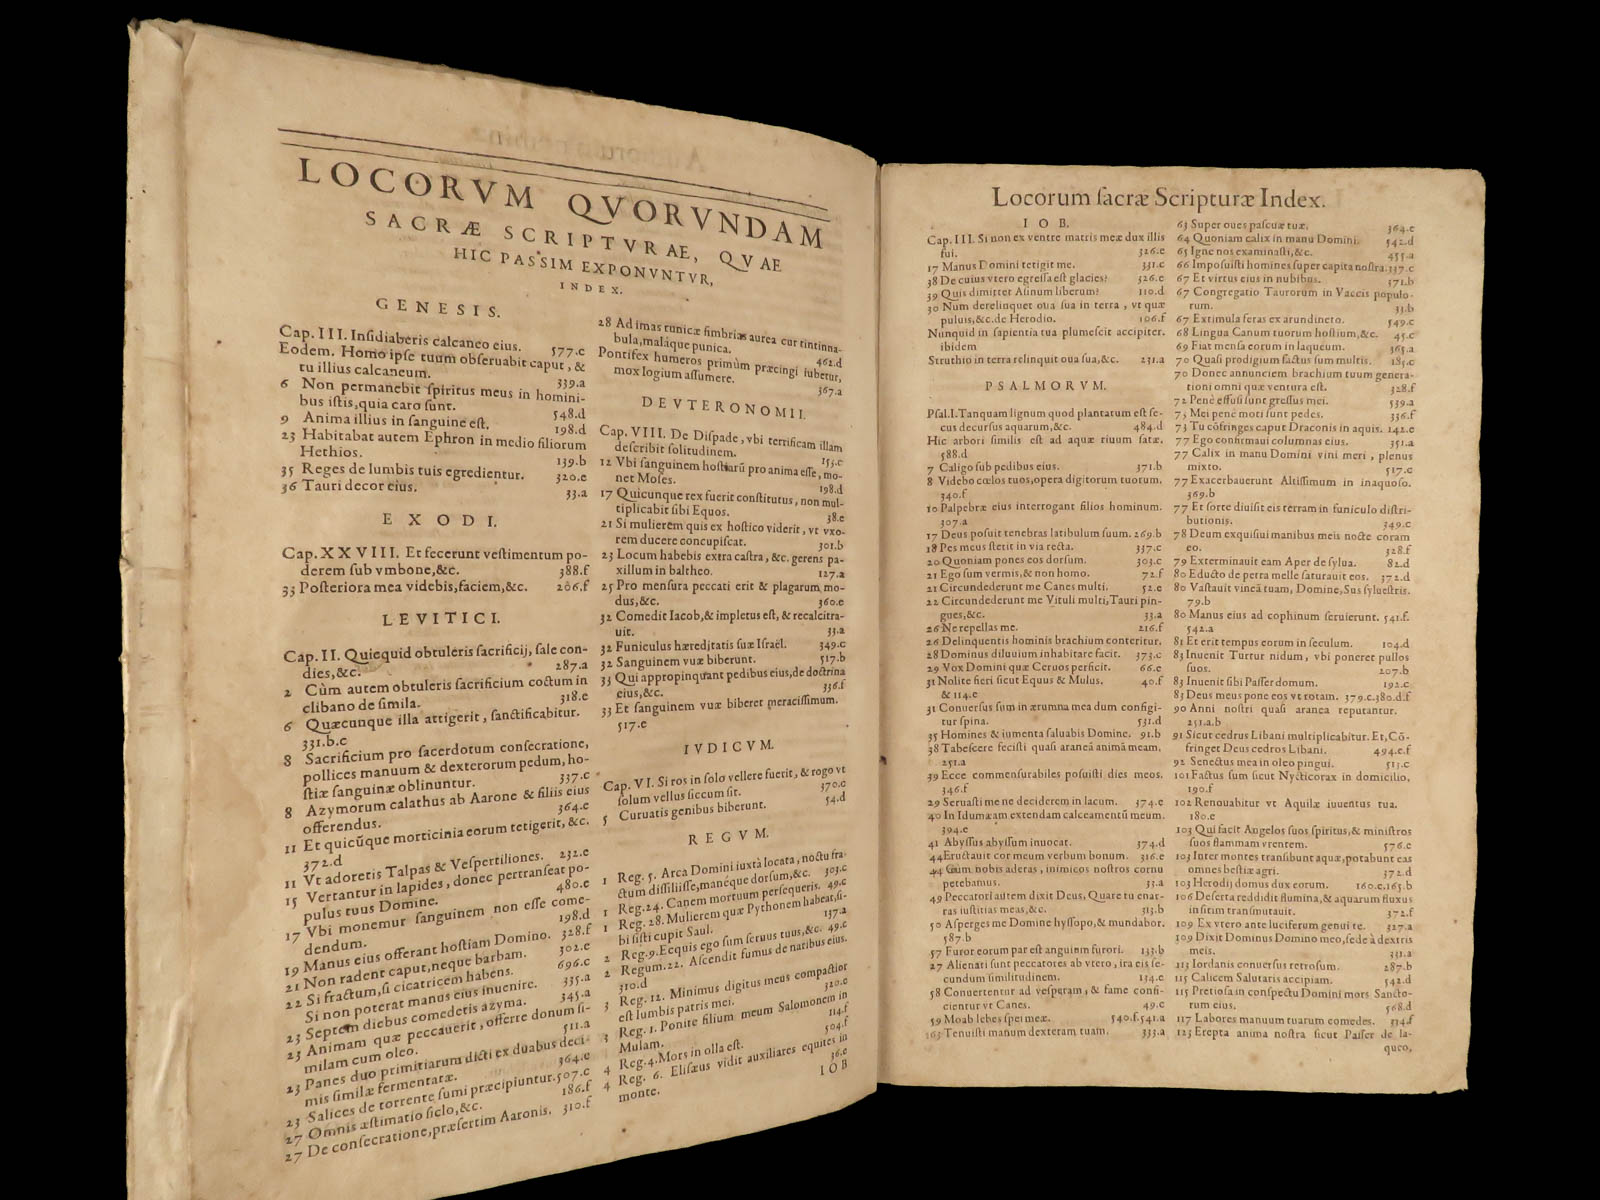 LOCORVM QVORVNDAM
SACRÆ SCRIPTVRAE, QVAE
HIC PASSIM EXPONVNTVR,
INDEX.
GENESIS.
Cap. III. Insidiaberis calcaneo eius. 577.c
Eodem. Homo ipse tuum obseruabit caput, &
tu illius calcaneum. 339.a
6 Non permanebit spiritus meus in homini-
bus istis, quia caro sunt. 548.d
9 Anima illius in sanguine est. 198.d
23 Habitabat autem Ephron in medio filiorum
Hethios. 139.b
35 Reges de lumbis tuis egredientur. 320.e
36 Tauri decor eius. 33.a
EXODI.
Cap. XXVIII. Et fecerunt vestimentum po-
derem sub vmbone, &c. 388.f
33 Posteriora mea videbis, faciem, &c. 206.f
LEVITICI.
Cap. II. Quicquid obtuleris sacrificij, sale con-
dies, &c. 287.a
2 Cùm autem obtuleris sacrificium coctum in
clibano de simila. 318.e
6 Quæcunque illa attigerit, sanctificabitur.
331.b.c
8 Sacrificium pro sacerdotum consecratione,
pollices manuum & dexterorum pedum, ho-
stiæ sanguinæ oblinuntur. 337.c
8 Azymorum calathus ab Aarone & filiis eius
offerendus. 364.e
11 Et quicũque morticinia eorum tetigerit, &c.
372.d
11 Vt adoretis Talpas & Vespertiliones. 232.e
15 Vertantur in lapides, donec pertranseat po-
pulus tuus Domine. 480.e
17 Vbi monemur sanguinem non esse come-
dendum. 198.d
19 Manus eius offerant hostiam Domino. 328.f
21 Non radent caput, neque barbam. 302.e
22 Si fractum, si cicatricem habens. 696.c
Si non poterat manus eius inuenire. 335.a
23 Septem diebus comedetis azyma. 345.a
23 Animam quæ peccauerit, offerre donum si-
milam cum oleo. 511.a
23 Panes duo primitiarum dicti ex duabus deci-
mis similæ fermentatæ. 364.e
23 Salices de torrente sumi præcipiuntur. 507.c
27 Omnis æstimatio siclo, &c. 186.f
27 De consecratione, præsertim Aaronis. 310.f
28 Ad imas tunicæ fimbrias aurea cur tintinna-
bula, malaque punica. 462.d
Pontifex humeros primùm præcingi iubetur,
mox logium assumere. 367.a
DEVTERONOMII.
Cap. VIII. De Dispade, vbi terrificam illam
describit solitudinem. 153.c
12 Vbi sanguinem hostiarũ pro anima esse, mo-
net Moses. 198.d
17 Quicunque rex fuerit constitutus, non mul-
tiplicabit sibi Equos. 38.e
21 Si mulierem quis ex hostico viderit, vt vxo-
rem ducere concupiscat. 301.b
23 Locum habebis extra castra, &c. gerens pa-
xillum in baltheo. 127.a
25 Pro mensura peccati erit & plagarum mo-
dus, &c. 360.e
32 Comedit Iacob, & impletus est, & recalcitra-
uit. 33.a
32 Funiculus hæreditatis suæ Israël. 349.c
32 Sanguinem vuæ biberunt. 517.b
33 Qui appropinquant pedibus eius, de doctrina
eius, &c. 336.f
33 Et sanguinem vuæ biberet meracissimum.
517.e
IVDICVM.
Cap. VI. Si ros in solo vellere fuerit, & rogo vt
solum vellus siccum sit. 370.c
5 Curuatis genibus biberunt. 54.d
REGVM.
1 Reg. 5. Arca Domini iuxtà locata, noctu fra-
ctum dissiliisse, manéque dorsum, &c. 303.c
1 Reg. 24. Canem mortuum persequeris. 49.c
1 Reg. 28. Mulierem quæ Pythonem habeat, si-
bi sisti cupit Saul. 137.a
2 Reg. 9. Ecquis ego sum seruus tuus, &c. 49.c
2 Regum. 22. Ascendit fumus de naribus eius.
310.d
3 Reg. 12. Minimus digitus meus compactior
est lumbis patris mei. 320.e
3 Reg. 1. Ponite filium meum Salomonem in
Mulam. 114.f
4 Reg. 4. Mors in olla est. 504.f
4 Reg. 6. Elisæus vidit auxiliares equites in
monte. 36.e
IOB
Locorum sacræ Scripturæ Index.
IOB.
Cap. III. Si non ex ventre matris meæ dux illis
fui. 326.e
17 Manus Domini tetigit me. 331.c
38 De cuius vtero egressa est glacies? 326.e
39 Quis dimittet Asinum liberum? 110.d
30 Num derelinquet oua sua in terra, vt quæ
puluis, &c. de Herodio. 106.f
Nunquid in sapientia tua plumescit accipiter.
ibidem
Struthio in terra relinquit oua sua, &c. 231.a
PSALMORVM.
Psal. I. Tanquam lignum quod plantatum est se-
cus decursus aquarum, &c. 484.d
Hic arbori similis est ad aquæ riuum satæ.
588.d
7 Caligo sub pedibus eius. 371.b
8 Videbo cœlos tuos, opera digitorum tuorum.
340.f
10 Palpebræ eius interrogant filios hominum.
307.a
17 Deus posuit tenebras latibulum suum. 269.b
18 Pes meus stetit in via recta. 337.c
20 Quoniam pones eos dorsum. 303.c
21 Ego sum vermis, & non homo. 72.f
21 Circundederunt me Canes multi. 52.e
22 Circundederunt me Vituli multi, Tauri pin-
gues, &c. 33.a
26 Ne repellas me. 216.f
26 Delinquentis hominis brachium conteritur.
28 Dominus diluuium inhabitare facit. 373.c
29 Vox Domini quæ Ceruos perficit. 66.e
31 Nolite fieri sicut Equus & Mulus. 40.f
& 114.e
31 Conuersus sum in ærumna mea dum configi-
tur spina. 531.d
35 Homines & iumenta saluabis Domine. 91.b
38 Tabescere fecisti quasi araneã animã meam.
251.a
39 Ecce commensurabiles posuisti dies meos.
346.f
29 Seruasti me ne deciderem in lacum. 374.e
40 In Idumæam extendam calceamentũ meum.
394.e
41 Abyssus abyssum inuocat. 374.d
44 Eructauit cor meum verbum bonum. 316.e
44 Cum nobis aderas, inimicos nostros cornu
petebamus. 33.a
49 Peccatori autem dixit Deus, Quare tu enar-
ras iustitias meas, &c. 313.b
50 Asperges me Domine hyssopo, & mundabor.
587.b
57 Furor eorum par est anguium furori. 133.b
27 Alienati sunt peccatores ab vtero, ira eis se-
cundum similitudinem. 134.e
58 Conuertentur ad vesperam, & fame confi-
cientur vt Canes. 49.c
59 Moab lebes spei meæ. 540.f.541.a
163 Tenuisti manum dexteram tuam. 333.a
63 Super oues pascuæ tuæ. 364.e
64 Quoniam calix in manu Domini. 542.d
65 Igne nos examinasti, &c. 455.a
66 Imposuisti homines super capita nostra. 337.c
67 Et virtus eius in nubibus. 371.b
67 Congregatio Taurorum in Vaccis populo-
rum. 33.b
67 Extimula feras ex arundineto. 549.c
68 Lingua Canum tuorum hostium, &c. 45.c
69 Fiat mensa eorum in laqueum. 363.a
70 Quasi prodigium factus sum multis. 185.c
70 Donec annunciem brachium tuum genera-
tioni omni quæ ventura est. 328.f
72 Penè effusi sunt gressus mei. 339.a
73 Mei penè moti sunt pedes. 336.f
73 Tu cõfringes caput Draconis in aquis. 142.e
77 Ego confirmaui columnas eius. 351.a
77 Calix in manu Domini vini meri, plenus
mixto. 517.c
77 Exacerbauerunt Altissimum in inaquoso.
369.b
77 Et sorte diuisit eis terram in funiculo distri-
butionis. 349.c
78 Deum exquisui manibus meis nocte coram
eo. 328.f
79 Exterminauit eam Aper de sylua. 82.d
80 Educto de petra melle saturauit eos. 372.d
80 Vastauit vineã tuam, Domine, Sus syluestris.
79.b
80 Manus eius ad cophinum seruierunt. 541.f.
542.a
83 Et erit tempus eorum in seculum. 104.d
83 Inuenit Turtur nidum, vbi poneret pullos
suos. 207.b
83 Inuenit sibi Passer domum. 192.c
83 Deus meus pone eos vt rotam. 379.c.380.d.f
90 Anni nostri quasi aranea reputantur.
251.a.b
91 Sicut cedrus Libani multiplicabitur. Et, Cõ-
fringet Deus cedros Libani. 494.e.f
92 Senectus mea in oleo pingui. 513.c
101 Factus sum sicut Nycticorax in domicilio.
190.f
102 Renouabitur vt Aquilæ iuuentus tua.
180.e
103 Qui facit Angelos suos spiritus, & ministros
suos flammam vrentem. 576.e
103 Inter montes transibunt aquæ, potabunt eas
omnes bestiæ agri. 372.d
103 Herodij domus dux eorum. 160.e.163.b
106 Deserta reddidit flumina, & aquarum fluxus
in sitim transmutauit. 372.f
109 Ex vtero ante luciferum genui te. 327.a
109 Dixit Dominus Domino meo, sede à dextris
meis. 331.a
113 Iordanis conuersus retrosum. 287.b
115 Calicem Salutaris accipiam. 542.d
115 Pretiosa in conspectu Domini mors Sancto-
rum eius. 568.d
117 Labores manuum tuarum comedes. 314.f
123 Erepta anima nostra sicut Passer de la-
queo,